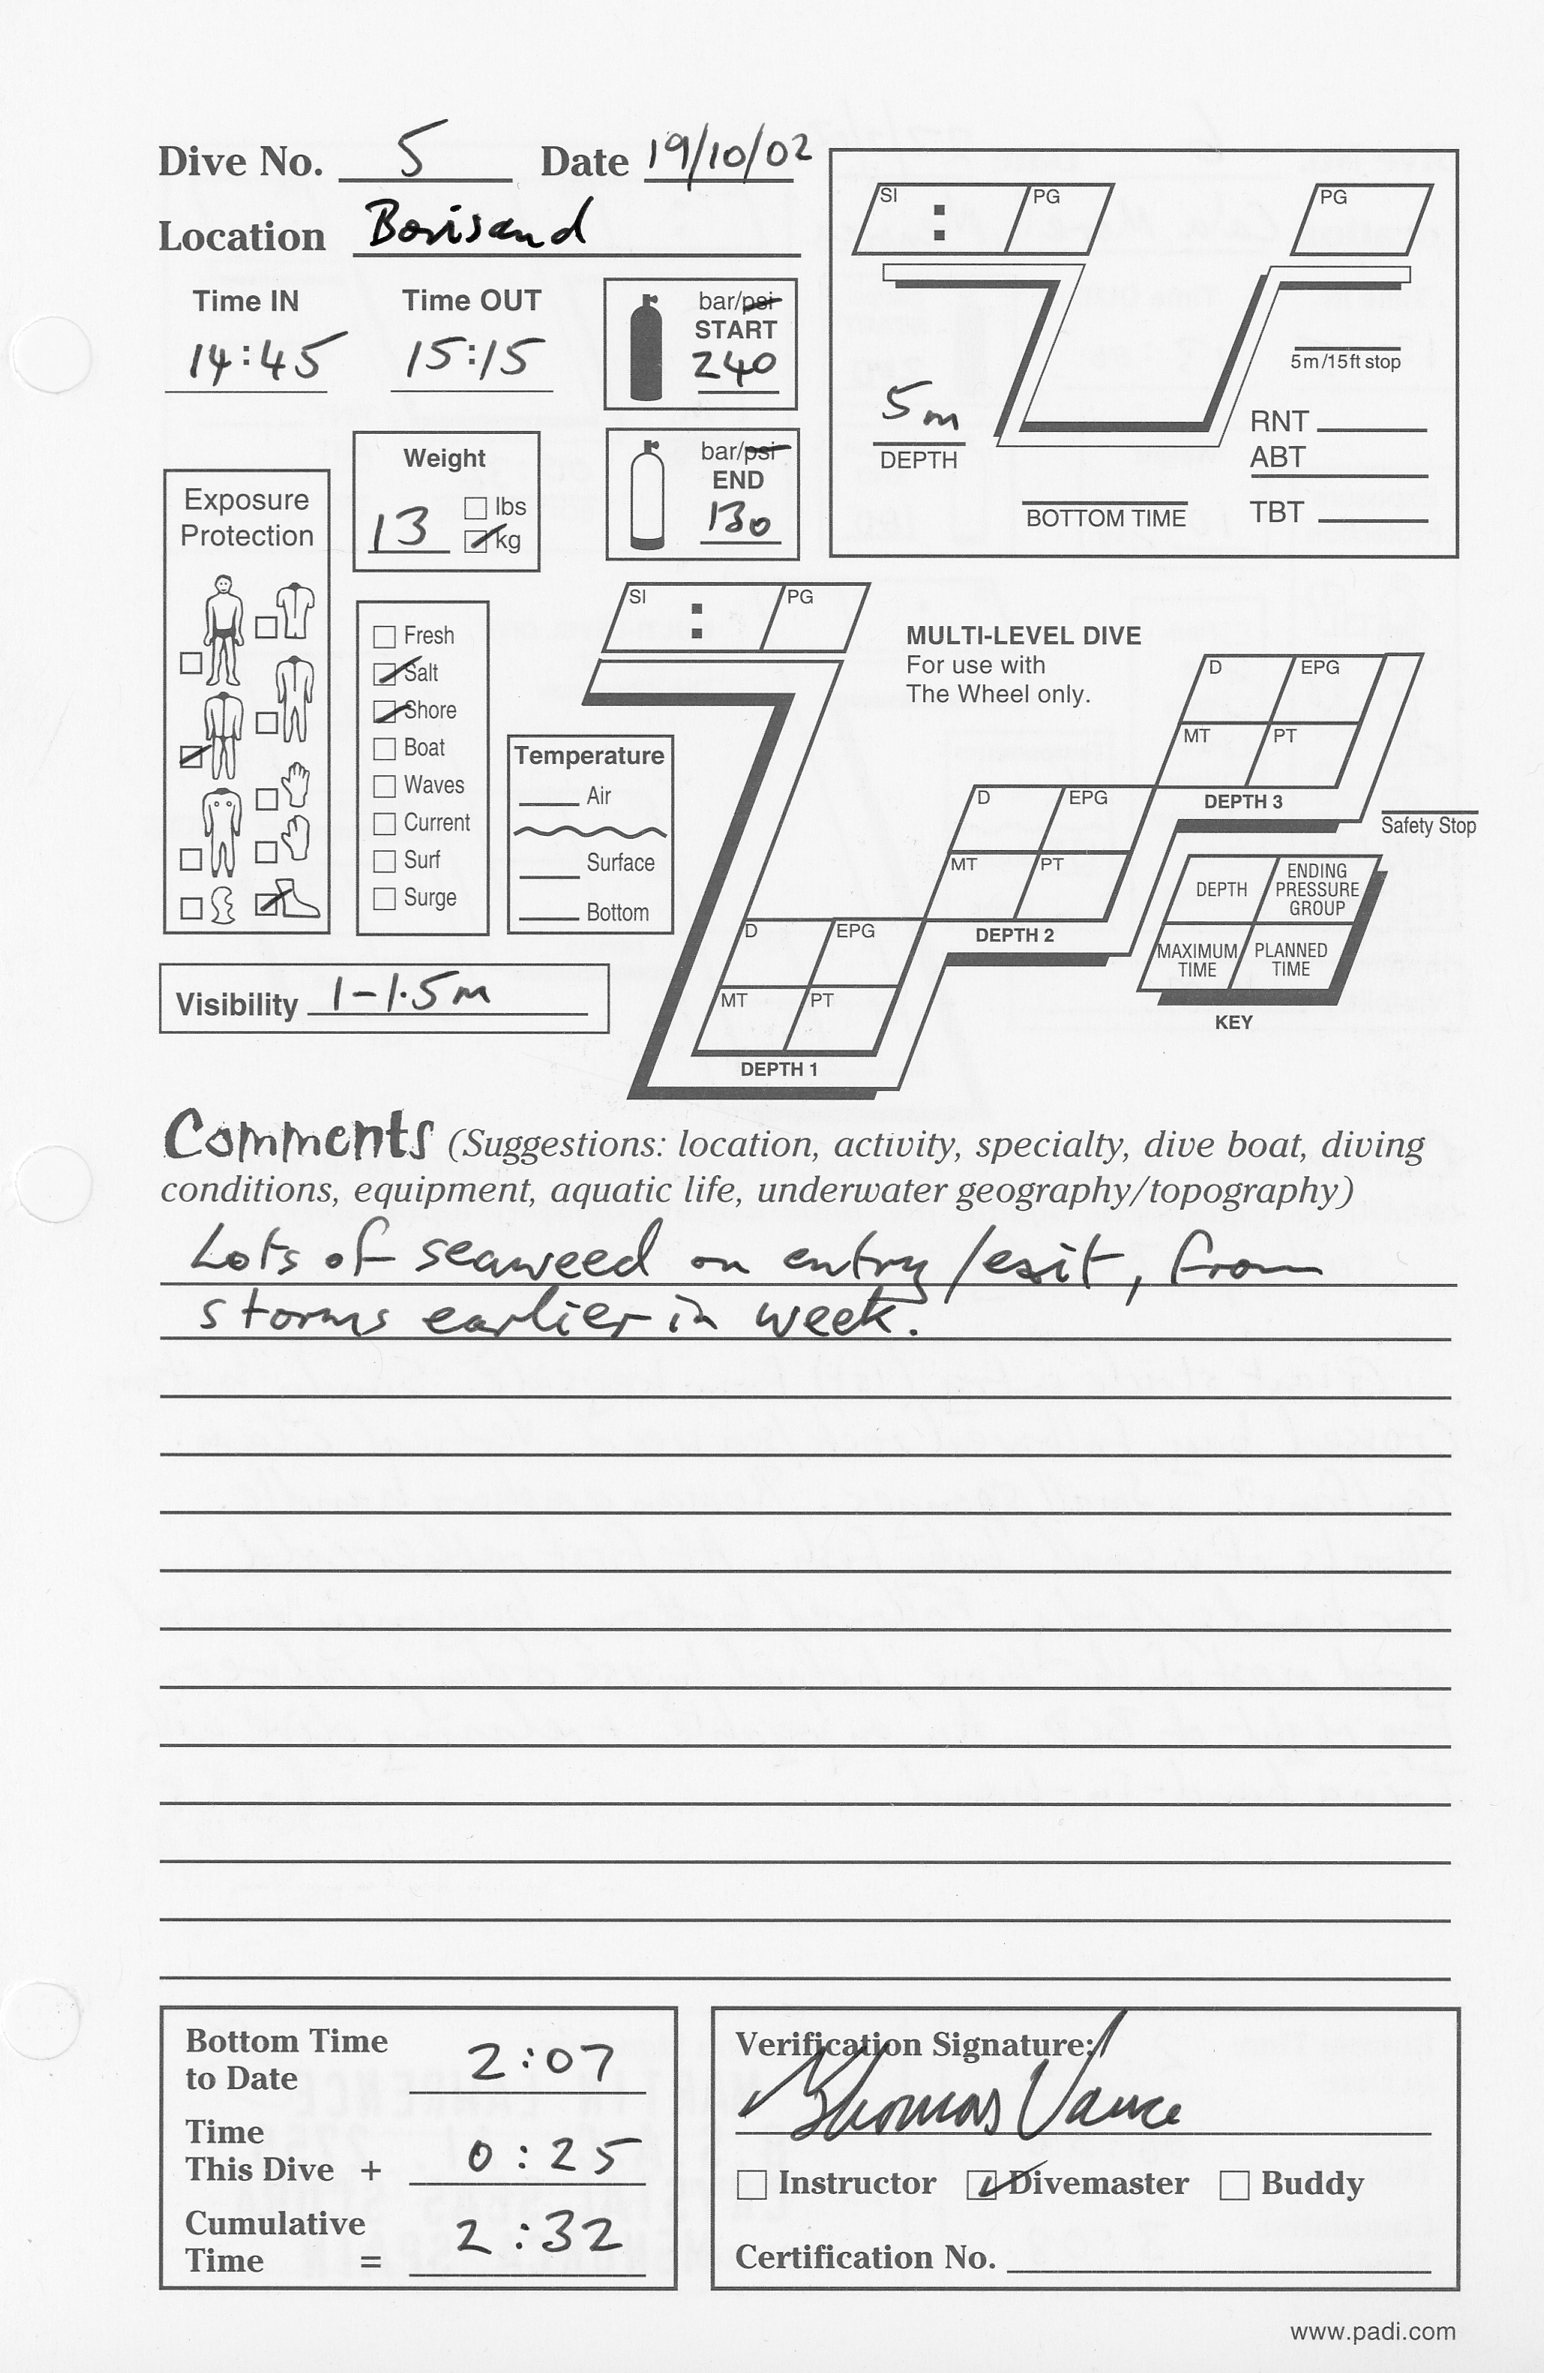 Dive No. 5 Date 19/10/02
Location Bovisand
Time IN 14:45 Time OUT 15:15
bar/psi START 240
bar/psi END 130
Weight 13 lbs kg
Exposure
Protection
Fresh
Salt
Shore
Boat
Waves
Current
Surf
Surge
Temperature
Air
Surface
Bottom
Visibility 1-1.5m
SI : PG PG
5m
DEPTH
BOTTOM TIME
5m/15ft stop
RNT
ABT
TBT
SI : PG
MULTI-LEVEL DIVE
For use with
The Wheel only.
D EPG
MT PT
DEPTH 3
Safety Stop
D EPG
MT PT
DEPTH 2
D EPG
MT PT
DEPTH 1
DEPTH ENDING PRESSURE GROUP
MAXIMUM TIME PLANNED TIME
KEY
Comments (Suggestions: location, activity, specialty, dive boat, diving
conditions, equipment, aquatic life, underwater geography/topography)
Lots of seaweed on entry/exit, from
storms earlier in week.
Bottom Time
to Date 2:07
Time
This Dive + 0:25
Cumulative
Time = 2:32
Verification Signature:
Thomas Vance
Instructor Divemaster Buddy
Certification No.
www.padi.com